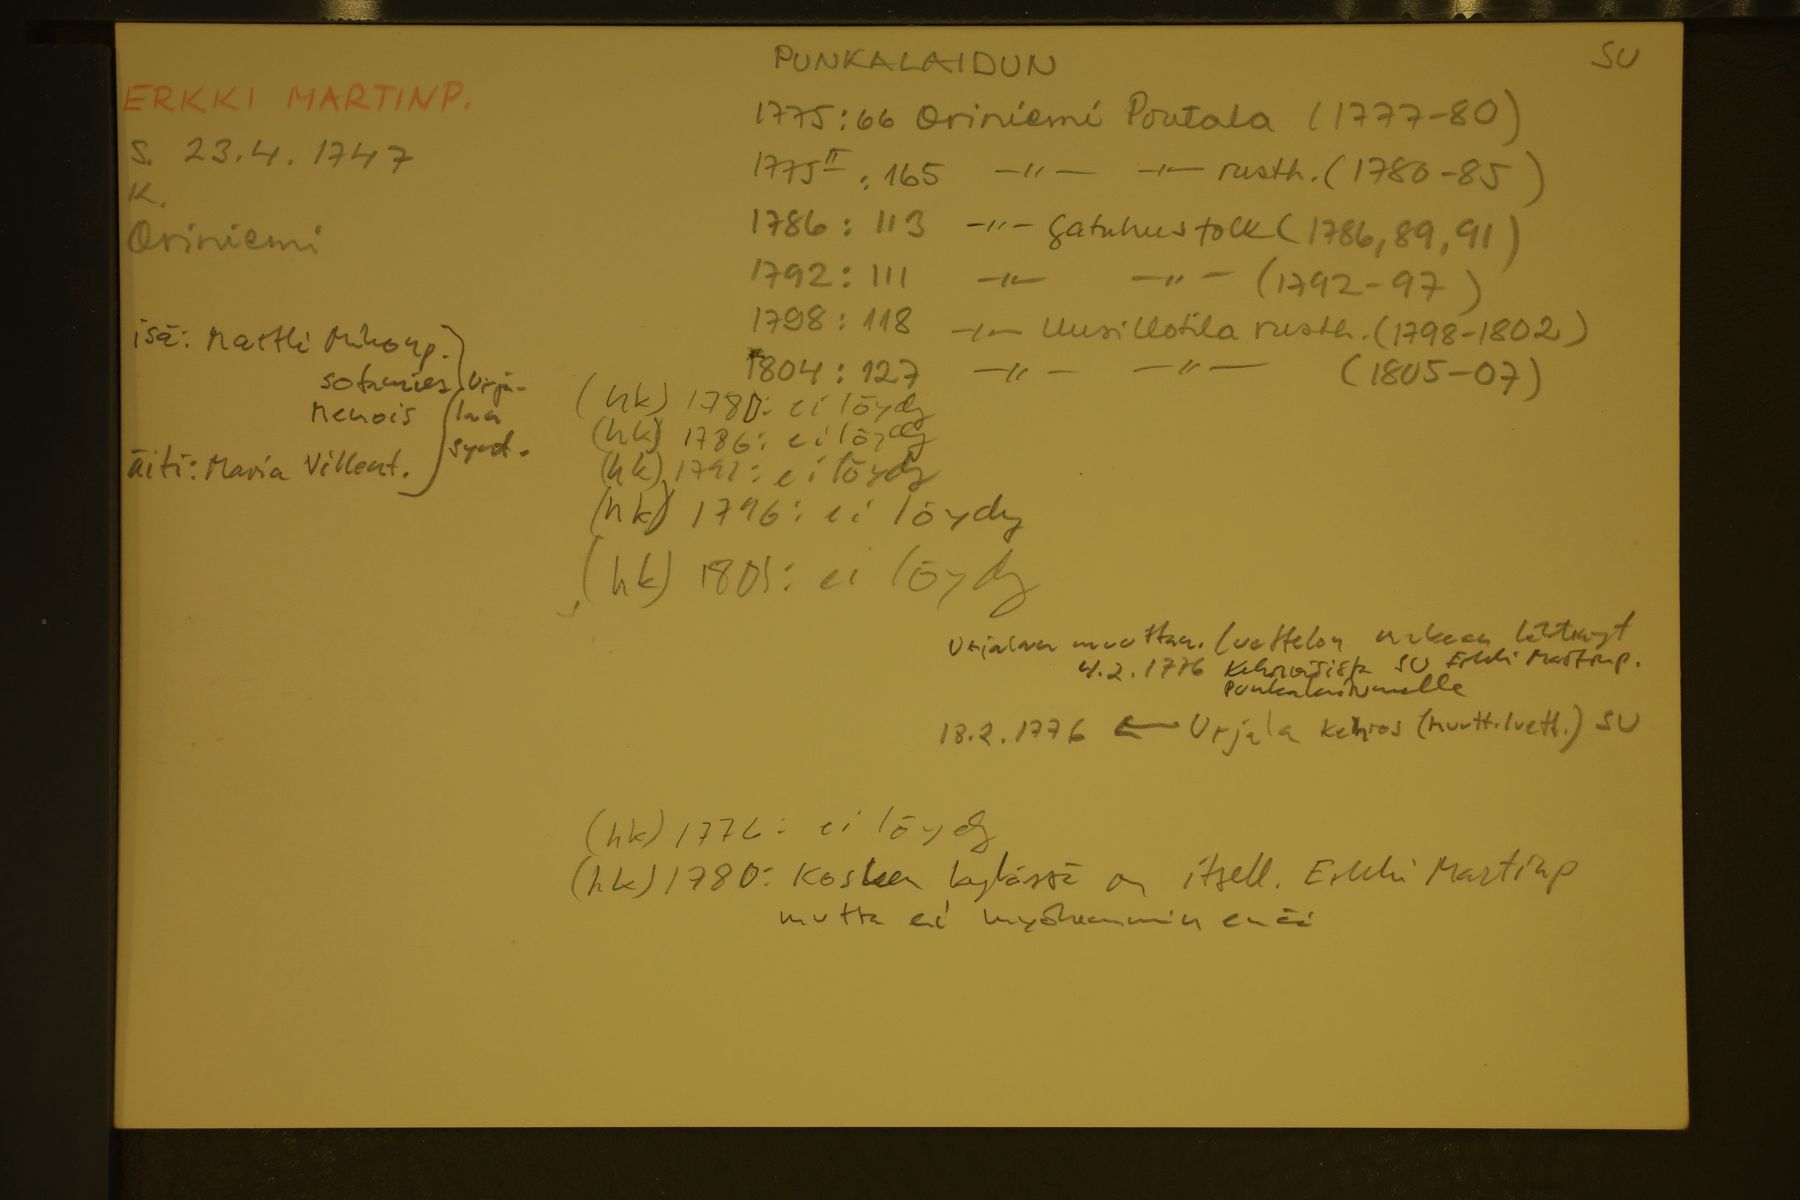 PUNKALAIDUN
SU
ERKKI MARTINP.
S. 23.4.1747
K.
Oriniemi
isä: Martti Mikonp.
sotamies
Kehois
Urja-
lan
synt.
äiti: Maria Villent.
1775:66 Oriniemi Poutala (1777-80)
1775II:165 -"- -"- rusth. (1780-85)
1786:113 -"- Gatuhusfolk (1786, 89, 91)
1792:111 -"- -"- (1792-97)
1798:118 -"- Uusi Uotila rusth. (1798-1802)
1804:127 -"- -"- (1805-07)
(hk) 1780: ei löydy
(hk) 1786: ei löydy
(hk) 1791: ei löydy
(hk) 1796: ei löydy
(hk) 1801: ei löydy
Urjalan muuttan. luettelon mukaan lähtenyt
4.2.1776 SU Erkki Martinp.
Punkalaitumelle
18.2.1776 ← Urjala Kehros (muutt.luett.) SU
(hk) 1776: ei löydy
(hk) 1780: Kosken kylässä on itsell. Erkki Martinp
mutta ei myöhemmin enää